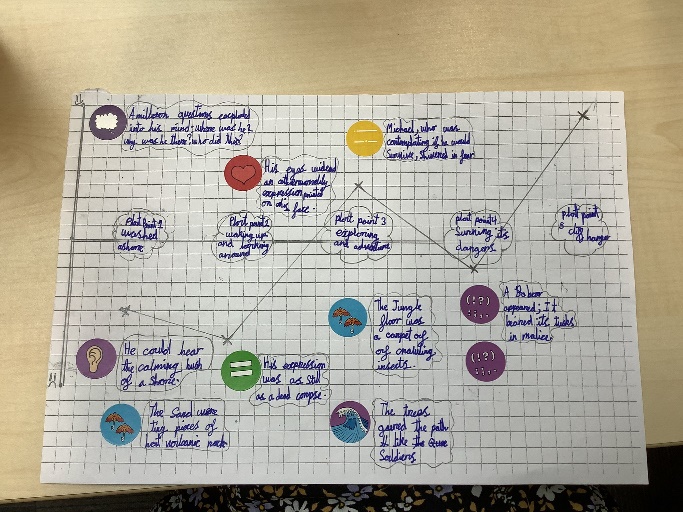 A million questions exploded
into his mind; where was he?
why was he there? who did this?
Michael, who was
contemplating if he would
survive, shivered in fear.
His eyes widend
an
expression
on his face.
Plot Point 1
washed
ashore
Plot point 2
waking up
and looking
around
plot point 3
exploring
and adventure
plot point 4
Surving its
dangers
plot point
5
hanger
He could hear
the calming hush
of a Shore.
His expression
was as Still
as a dead corpse.
The Jungle
floor was
a carpet of
of
insects.
(!?)
;:..
A
appeared; It
its tusks
in malice.
(!?)
;:..
The Sand were
tiny pieces of
hot volcanic rock
The trees
the path
like the
Soldiers